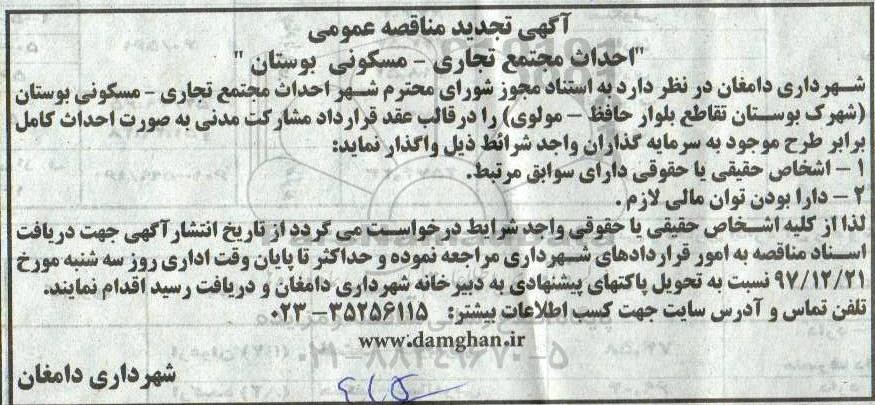 آگهی تجدید مناقصه عمومی
"احداث مجتمع تجاری - مسکونی بوستان "
شهرداری دامغان در نظر دارد به استناد مجوز شورای محترم شهر احداث مجتمع تجاری - مسکونی بوستان
(شهرک بوستان تقاطع بلوار حافظ – مولوی) را در قالب عقد قرارداد مشارکت مدنی به صورت احداث کامل
برابر طرح موجود به سرمایه گذاران واجد شرائط ذیل واگذار نماید:
۱ – اشخاص حقیقی یا حقوقی دارای سوابق مرتبط.
۲ – دارا بودن توان مالی لازم .
لذا از کلیه اشخاص حقیقی یا حقوقی واجد شرایط درخواست می گردد از تاریخ انتشار آگهی جهت دریافت
اسناد مناقصه به امور قراردادهای شهرداری مراجعه نموده و حداکثر تا پایان وقت اداری روز سه شنبه مورخ
۹۷/۱۲/۲۱ نسبت به تحویل پاکتهای پیشنهادی به دبیرخانه شهرداری دامغان و دریافت رسید اقدام نمایند.
تلفن تماس و آدرس سایت جهت کسب اطلاعات بیشتر: ۳۵۲۵۶۱۱۵ -۰۲۳
www.damghan.ir
۰۲۱-۸۸۳۴۹۶۷۰-۵
شهرداری دامغان